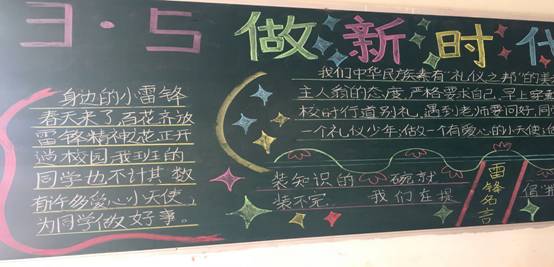 3·5
做新时代
身边的小雷锋
春天来了,百花齐放
雷锋精神花正开
满校园,我班的
同学也不计其数
有许多爱心小天使,
为同学做好事。
我们中华民族素有“礼仪之邦”的美
主人翁的态度,严格要求自己,早上穿
校时行道别礼,遇到老师要问好,同
一个礼仪少年,做一个有爱心的小天使
装知识的 碗就
装不完 我们在提
雷锋名言